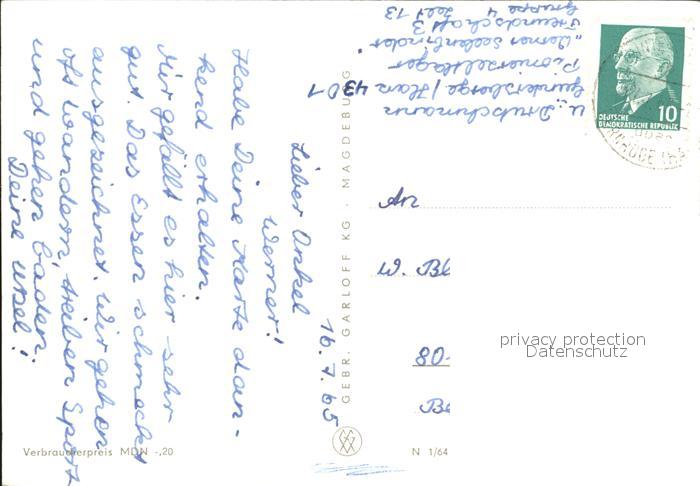 16.7.65
Lieber Onkel
Werner!
Habe Deine Karte dan-
kend erhalten.
Mir gefällt es hier sehr
gut. Das Essen schmeckt
ausgezeichnet. Wir gehen
oft wandern, treiben Sport
und gehen baden.
Deine Ursel!
U. Deutschmann
4301
Güntersberge / Harz
Pionierzeltlager
"Werner Seelenbinder"
Freundschaft 3
Gruppe 4 Zelt 13
DEUTSCHE
DEMOKRATISCHE REPUBLIK
10
An
W. Bl
80-
Be
privacy protection
Datenschutz
GEBR. GARLOFF KG · MAGDEBURG
Verbraucherpreis MDN -,20
N 1/64